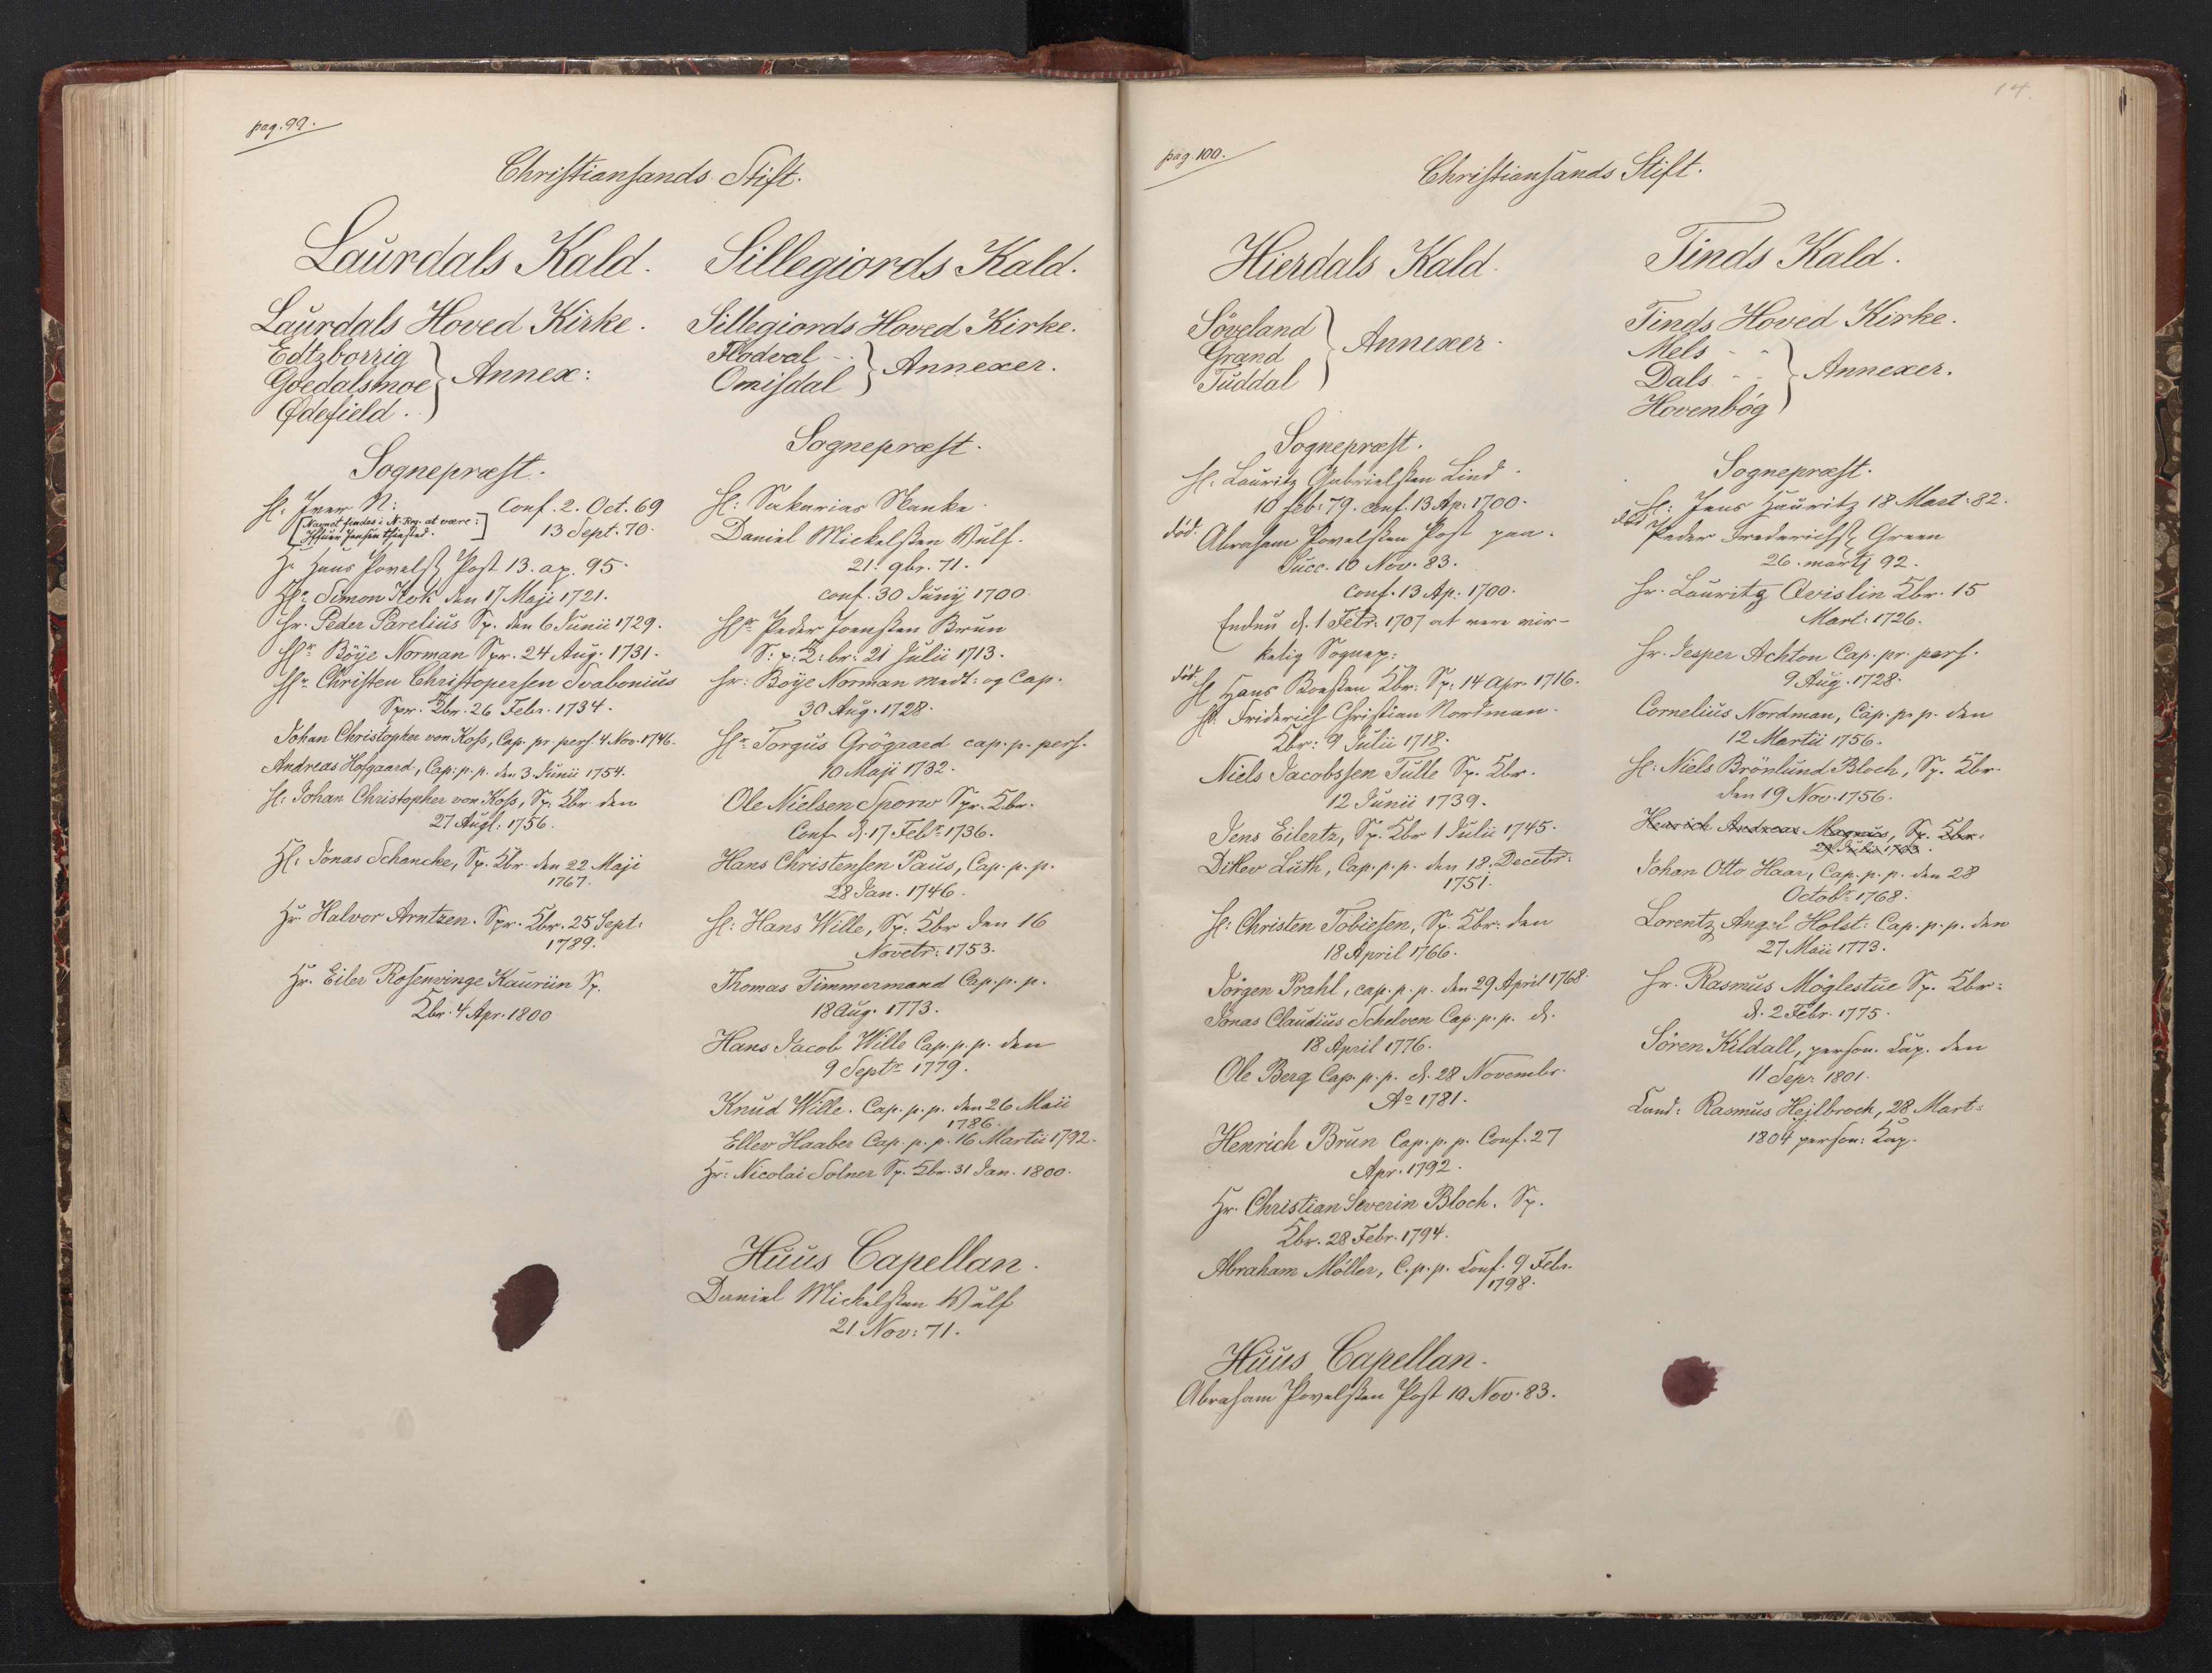 pag. 99.
Christiansands Stift.
Laurdals Kald.
Laurdals Hoved Kirke.
Edtzborrig
Goedalsmoe
Ødefield.
Annex:
Sognepræst.
H. Iver N: Conf. 2. Oct. 69
[Navnet findes i N. Reg. at være:
Jensen ]
13 Sept. 70.
Hr Hans Povels. Post 13. ap. 95.
Hr. Simon Kok den 17 Maji 1721.
Hr. Peder Parelius Sp. den 6 Junii 1729.
Hr Böÿe Norman Spr. 24 Aug. 1731.
Hr Christen Christopersen Svabonius
Spr. Kbr. 26 Febr. 1734.
Johan Christopher von Koss, Cap. pr. pers. 4 Nov. 1746.
Andreas Hofgaard, Cap: p. p. den 3. Junii 1754.
H: Johan Christopher von Koss, Sp. Kbr den
27 Augl: 1756.
H: Jonas Schancke, Sp. Kbr. den 22 Maji
1767.
Hr. Halvor Arntzen. Spr. Kbr. 25 Sept:
1789.
Hr. Eiler Rosenvinge Kauriin Sp.
Kbr. 4 Apr. 1800
Sillegiords Kald.
Sillegiords Hoved Kirke.
Flodeval - .
Omisdal
Annexer.
Sognepræst.
H: Sakarias Skanke.
Daniel Mickelsen Wulf.
21. 9br. 71.
conf. 30 Junij 1700.
Hr Peder Joensen Brun
S: p: K: br: 21 Julii 1713.
Hr: Böÿe Norman medt: og Cap.
30 Aug. 1728.
Hr Torgus Grögaard cap. p. pers.
10 Maji 1732.
Ole Nielsen Sporw Spr. Kbr.
Conf. d. 17 Febr. 1736.
Hans Christensen Paus, Cap. p. p.
28 Jan. 1746.
H: Hans Wille, Sp: Kbr den 16
Novetr: 1753.
Thomas Timmermand Cap. p. p.
18 Aug. 1773.
Hans Jacob Wille Cap. p. p. den
9 Septr 1779.
Knud Wille. Cap. p. p. den 26 Maii
1786.
Ellev Haaber Cap. p. p. 16 Martii 1792.
Hr: Nicolai Solner Sp. Kbr. 31 Jan. 1800.
Huus Capellan.
Daniel Mickelsen Wulf
21. Nov: 71.
14.
pag. 100.
Christiansands Stift.
Hierdals Kald.
Söveland
Grand
Tuddal
Annexer.
Sognepræst.
H. Lauritz Gabrielsen Lind.
10 feb: 79. conf. 13 Ap: 1700.
död. Abraham Povelsen Post paa.
Succ. 10 Nov. 83.
conf. 13 Ap: 1700.
Endnu d. 1 Febr: 1707 at være vir-
kelig Sognep:
död. H Hans Boesen Kbr: Sp: 14 Apr. 1716.
H. Friderich Christian Nordman.
Kbr: 9 Julii 1718.
Niels Jacobssen Tulle Sp. Kbr.
12 Junii 1739.
Jens Eilertz, Sp. Kbr 1 Julii 1745.
Ditlev Luth, Cap. p. p. den 18. Decebr:
1751.
H: Christen Tobiesen, Sp. Kbr: den
18 April 1766.
Jörgen Prahl, cap. p. p. den 29 April 1768.
Jonas Claudius Schelven Cap. p. p. d.
18 April 1776.
Ole Berg Cap. p. p. d. 28 Novembr.
Ao 1781.
Henrich Brun Cap. p. p. Conf. 27
Apr. 1792.
Hr. Christian Severin Bloch. Sp.
Kbr. 28 Febr. 1794.
Abraham Möller, C. p. p. Conf. 9 Febr.
1798.
Huus Capellan.
Abraham Povelsen Post 10 Nov. 83.
Tinds Kald.
Tinds Hoved Kirke.
Mels - -
Dals - -
Hovenbög
Annexer.
Sognepræst.
H: Jens Lauritz 18 Mart: 82.
död Peder Frederichs. Green
26. martij 92.
Hr. Lauritz Qvislin Kbr. 15
Mart: 1726.
Hr. Jesper Achton Cap. pr. pers.
9 Aug. 1728.
Cornelius Nordman, Cap. p. p. den
12 Martii 1756.
H: Niels Brönlund Bloch, Sp. Kbr.
den 19 Nov. 1756.
Henrich Andreas Magnus, Sp. Kbr.
29 Julii 1763.
Johan Otto Haar, Cap. p. p. den 28
Octobr 1768.
Lorentz Angel Holst: Cap. p. p. den
27 Maii 1773.
Hr. Rasmus Möglestue Sp. Kbr:
d. 2 Febr. 1775.
Sören Kildall, person. Cap. den
11 Sep: 1801.
Cand: Rasmus Hejlbroch, 28 Mart:
1804 person: Cap.